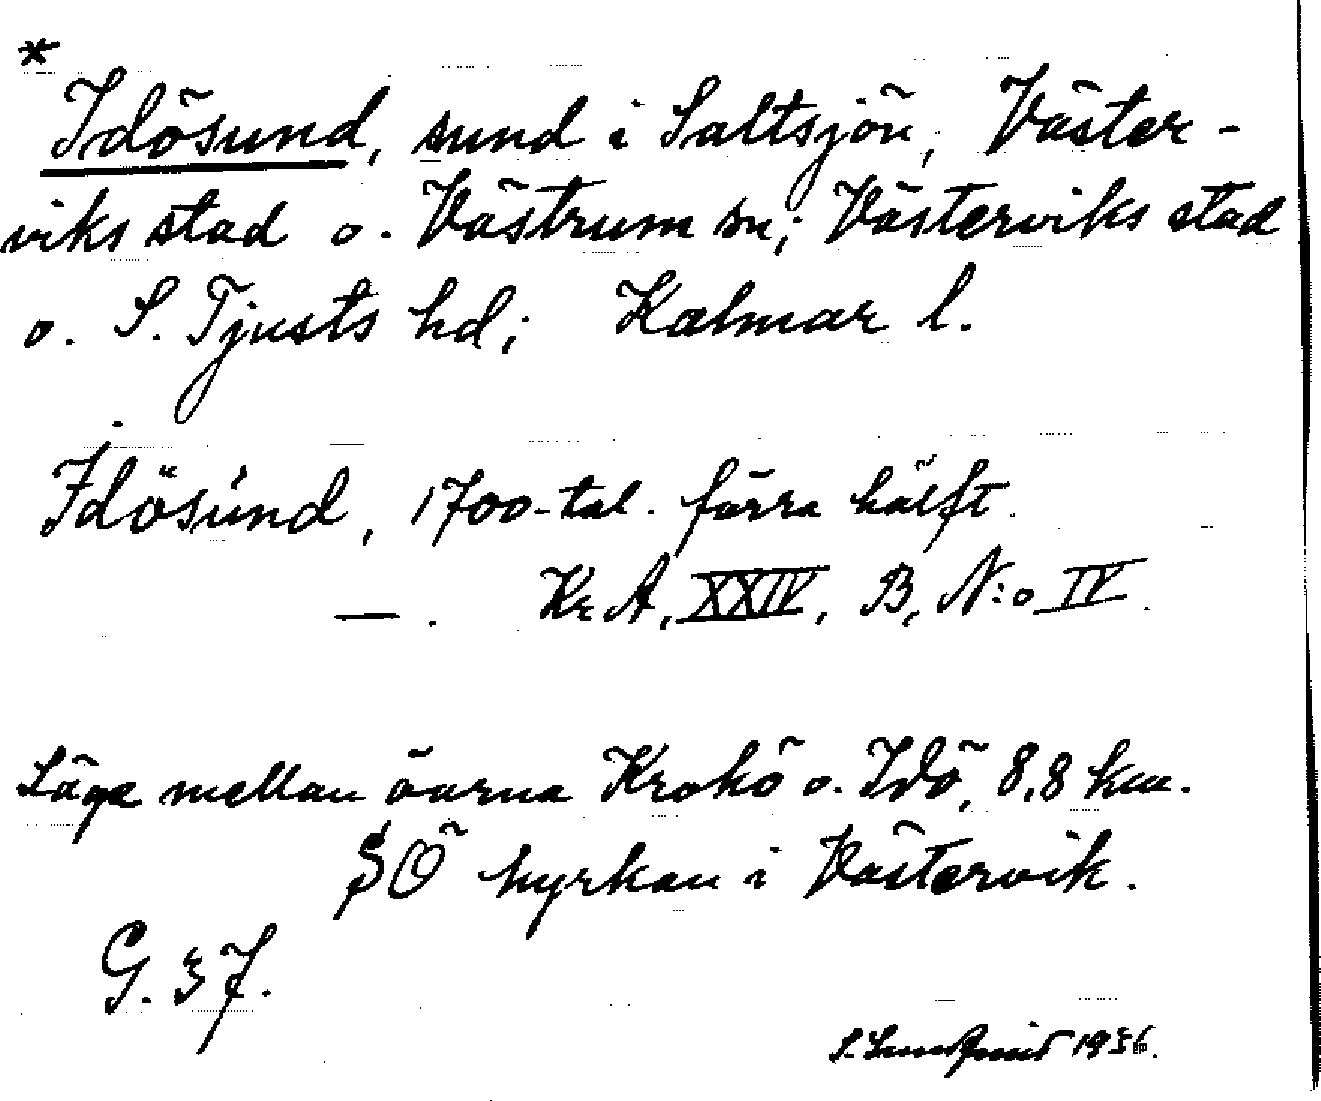 *
Idösund, sund i Saltsjön, Väster-
viks stad o. Västrum sn; Västerviks stad
o. S. Tjusts hd; Kalmar l.
Idösúnd, 1700-tal. förra hälft.
—. Kr A, XXIV, B, N:o IV.
Läge mellan öarna Krokö o. Idö, 8,8 km.
SÖ kyrkan i Västervik.
G. 37.
S. Lundqvist 1936.